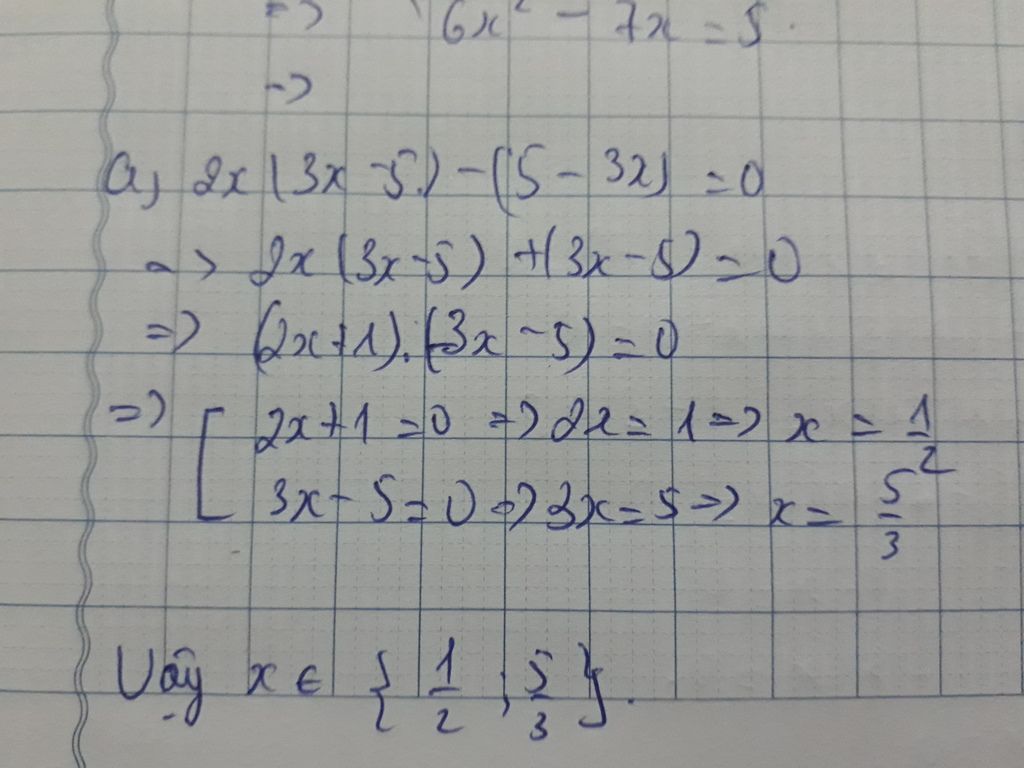 => 6x² - 7x = 5.
=>
a, 2x (3x - 5) - (5 - 3x) = 0
=> 2x (3x - 5) + (3x - 5) = 0
=> (2x + 1).(3x - 5) = 0
=> [ 2x + 1 = 0 => 2x = 1 => x = 1/2
3x - 5 = 0 => 3x = 5 => x = 5/3
Vậy x ∈ { 1/2 ; 5/3 }.